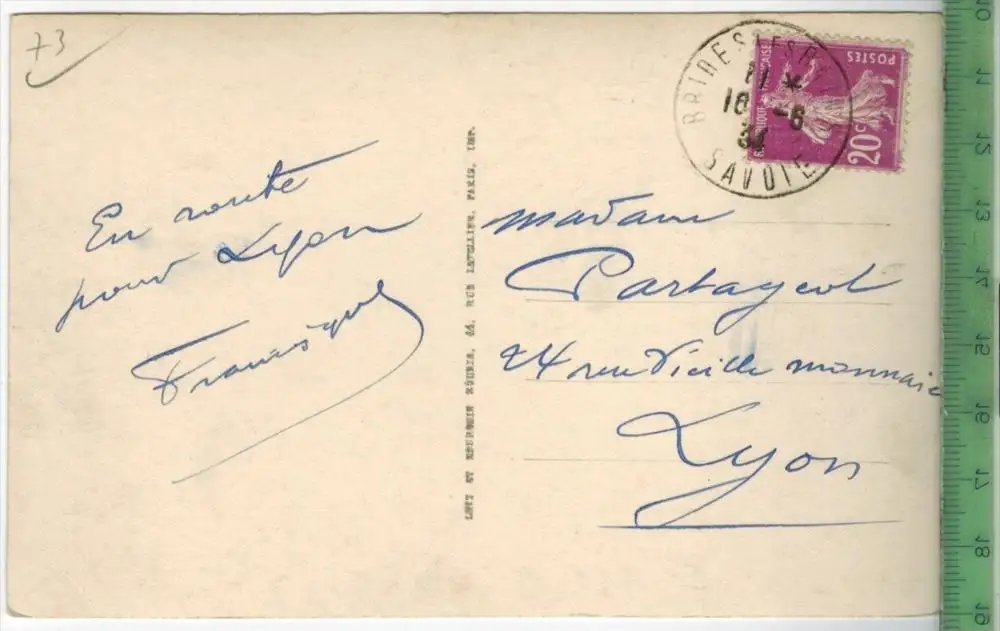 73
En route
pour Lyon
LEVY ET NEURDEIN RÉUNIS, 44, RUE LETELLIER, PARIS, IMP.
BRIDES LES
11 *
18 -6
SAVOIE
POSTES
FRANÇAISE
20c
madame
Partageot
24 rue Vieille monnaie
Lyon
10
11
12
13
14
15
16
17
18
19